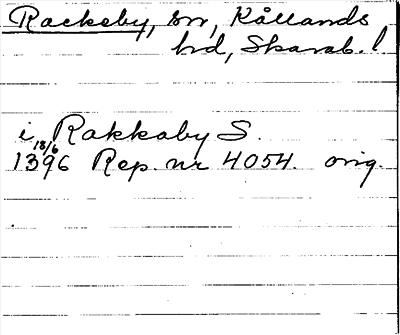 Rackeby, sn, Kållands
hd, Skarab. l
i Rakkaby S.
18/6
1396 Rep. nr 4054. orig.